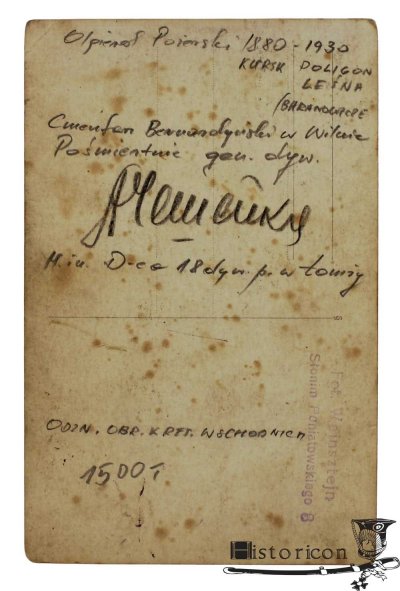 Olgierd Pożerski 1880-1930
KURSK POLIGON
LEŚNA
/BARANOWICZE
Cmentarz Bernardyński w Wilnie
Pośmiertnie gen. dyw.
M.in. D-ca 18 dyw. p. w Łomży
Fot. Wajnsztejn
Słonim Poniatowskiego 8
ODZN. OBR. KRES. WSCHODNICH
1500 T
Historicon